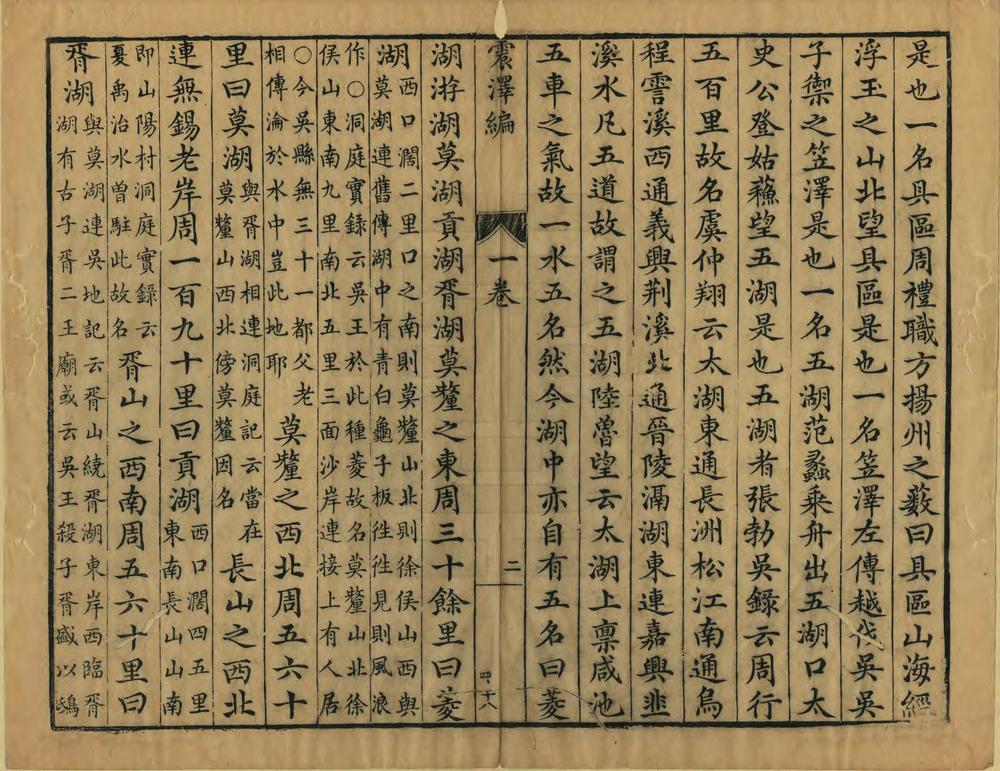 是也一名具區周禮職方揚州之藪曰具區山海經
浮玉之山北望具區是也一名笠澤左傳越伐吳吳
子禦之笠澤是也一名五湖范蠡乘舟出五湖口太
史公登姑蘇望五湖是也五湖者張勃吳錄云周行
五百里故名虞仲翔云太湖東通長洲松江南通烏
程霅溪西通義興荆溪北通晉陵滆湖東連嘉興韭
溪水凡五道故謂之五湖陸魯望云太湖上禀咸池
五車之氣故一水五名然今湖中亦自有五名曰菱
震澤編
一卷
二
湖游湖莫湖貢湖胥湖莫釐之東周三十餘里曰菱
湖
西口濶二里口之南則莫釐山北則徐侯山西與
莫湖連舊傳湖中有青白龜子板徃徃見則風浪
作○洞庭實錄云吳王於此種菱故名莫釐山北徐
侯山東南九里南北五里三面沙岸連接上有人居
○今吳縣無三十一都父老
相傳淪於水中豈此地耶
莫釐之西北周五六十
里曰莫湖
與胥湖相連洞庭記云當在
莫釐山西北傍莫釐因名
長山之西北
連無錫老岸周一百九十里曰貢湖
西口濶四五里
東南長山山南
即山陽村洞庭實錄云
夏禹治水曽駐此故名
胥山之西南周五六十里曰
胥湖
與莫湖連吳地記云胥山繞胥湖東岸西臨胥
湖有古子胥二王廟或云吳王殺子胥盛以鴟